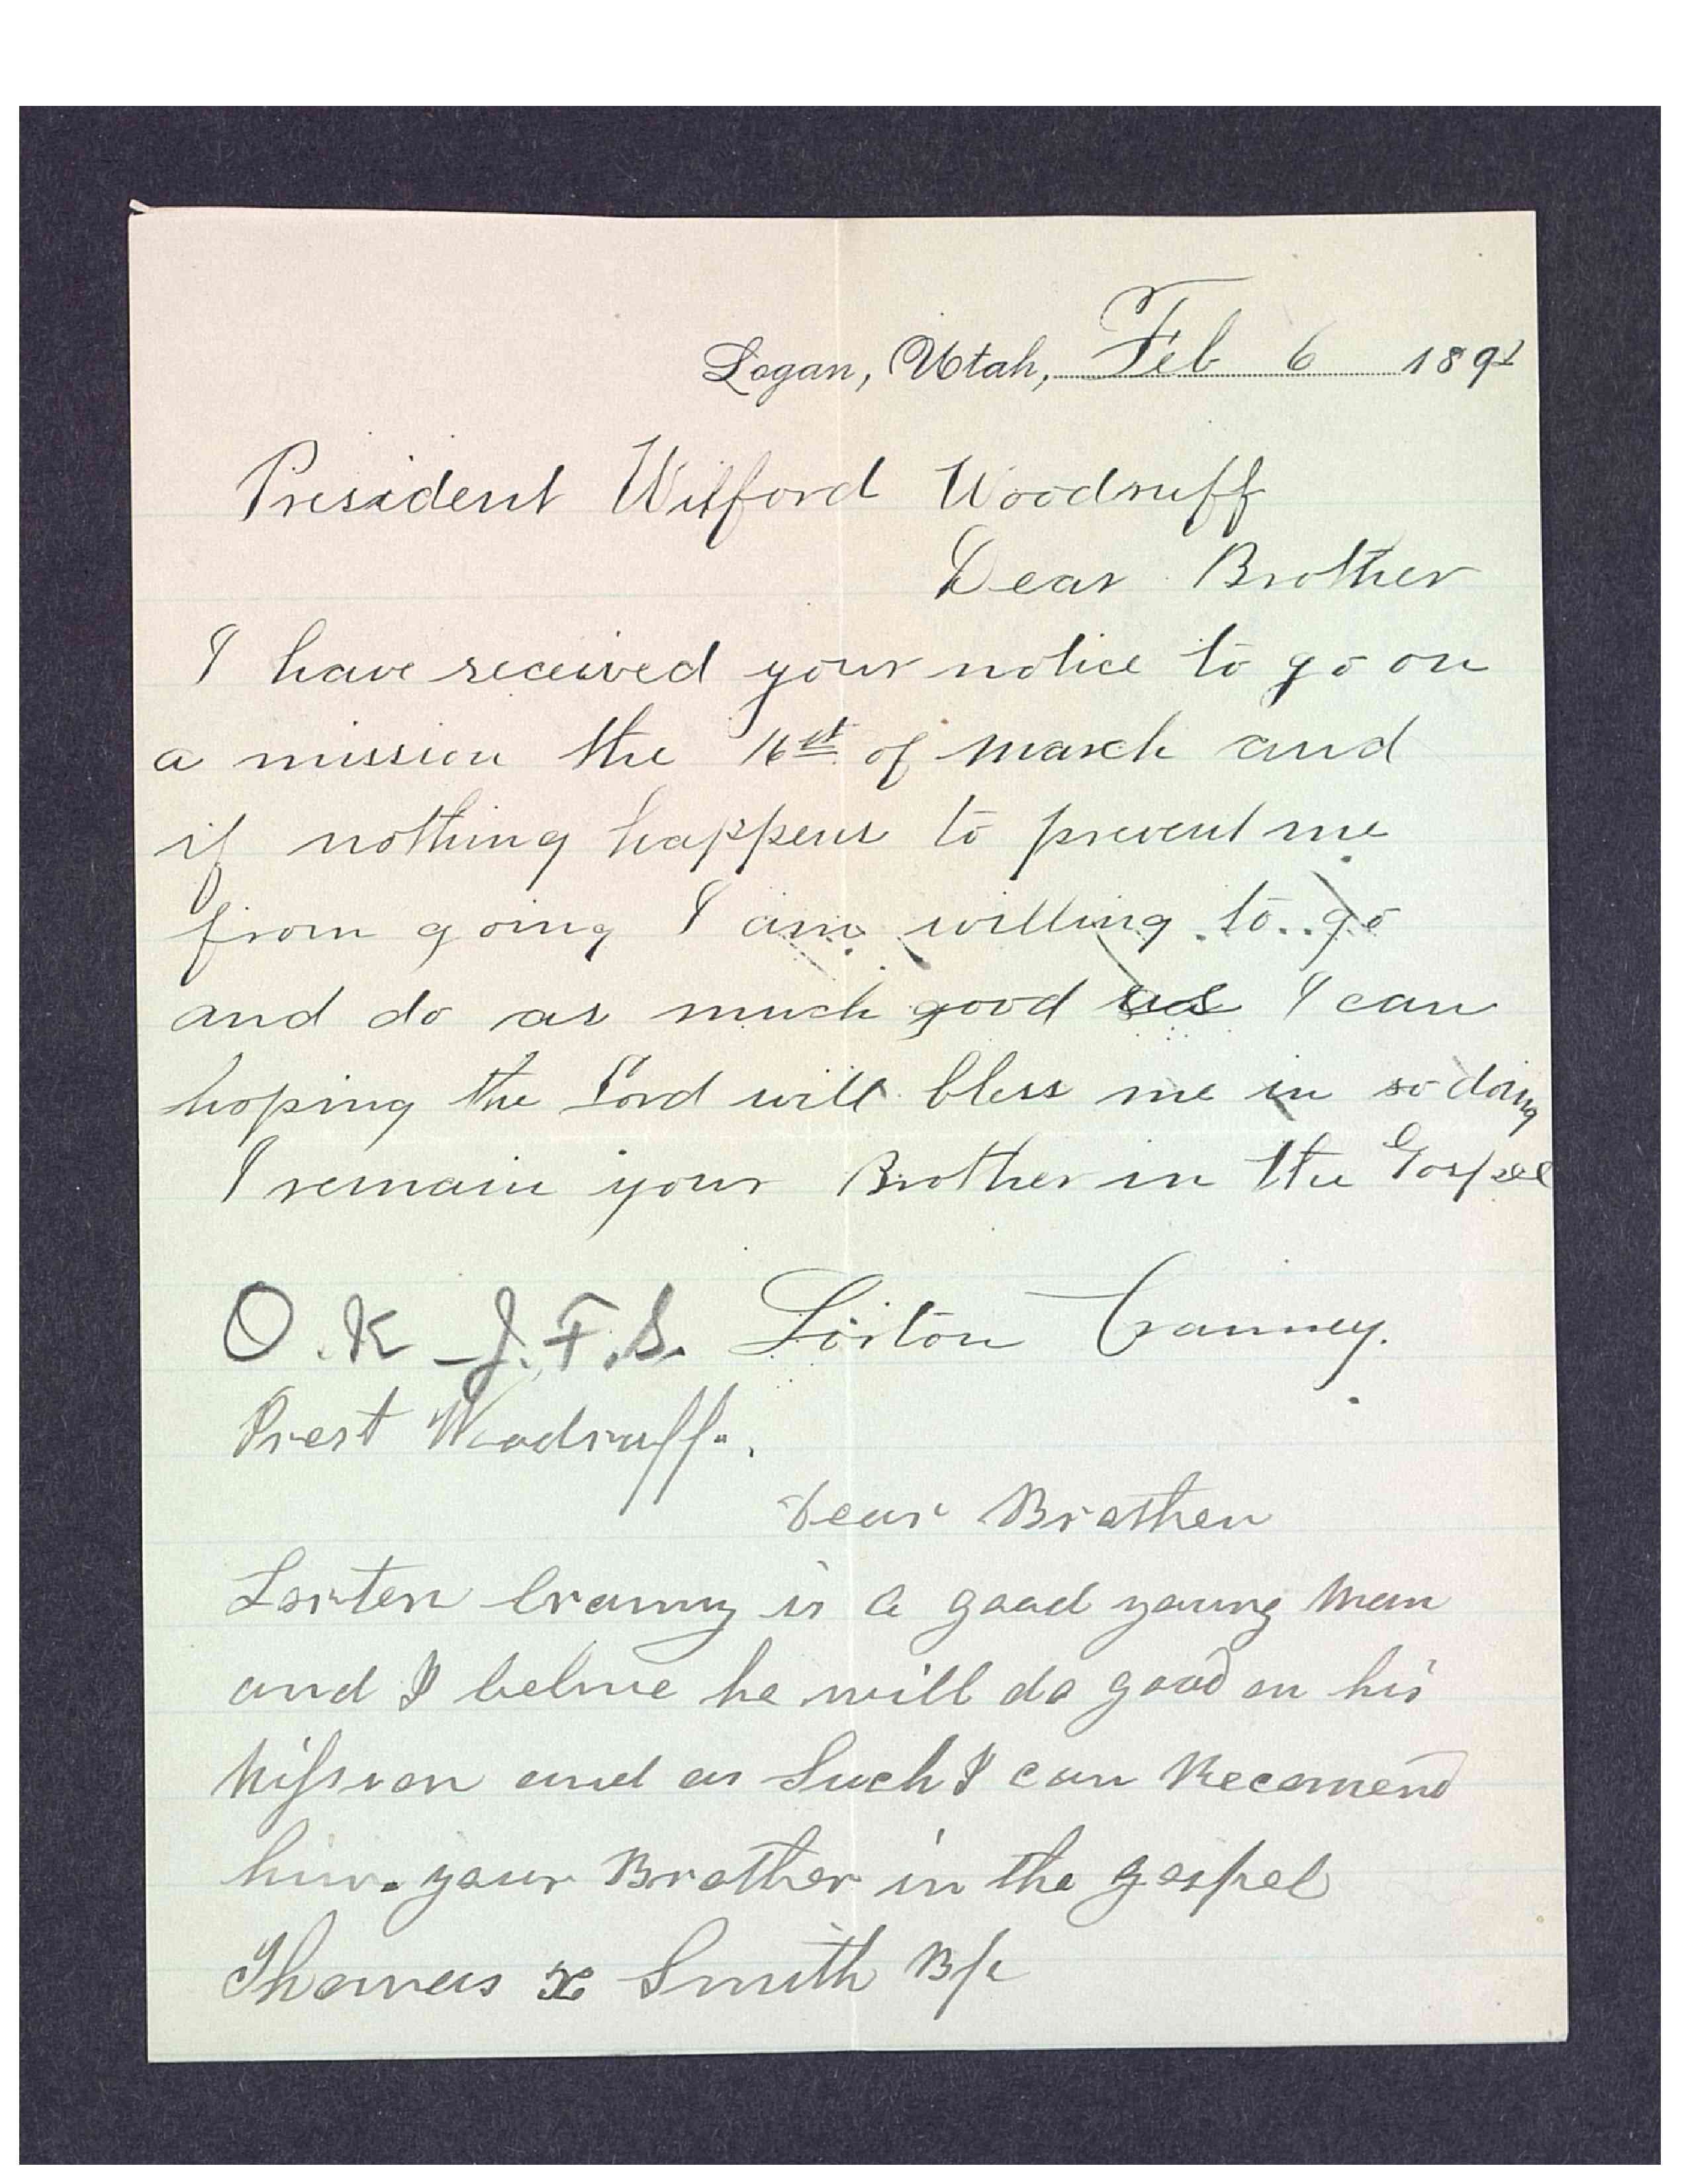 Logan, Utah, Feb 6 1891
President Wilford Woodruff
Dear Brother
I have received your notice to go on
a mission the 16st of march and
if nothing happens to prevent me
from going I am willing to go
and do as much good as I can
hoping the Lord will bless me in so doing
I remain your Brother in the Gospel
O.K - J.F.S. Loiton Cranney.
Prest Woodruff.
Dear Brother
Lorten Cranny is a good young man
and I beleive he will do good on his
Mission and as Such I can Recomend
him. your Brother in the gospel
Thomas X Smith Bp